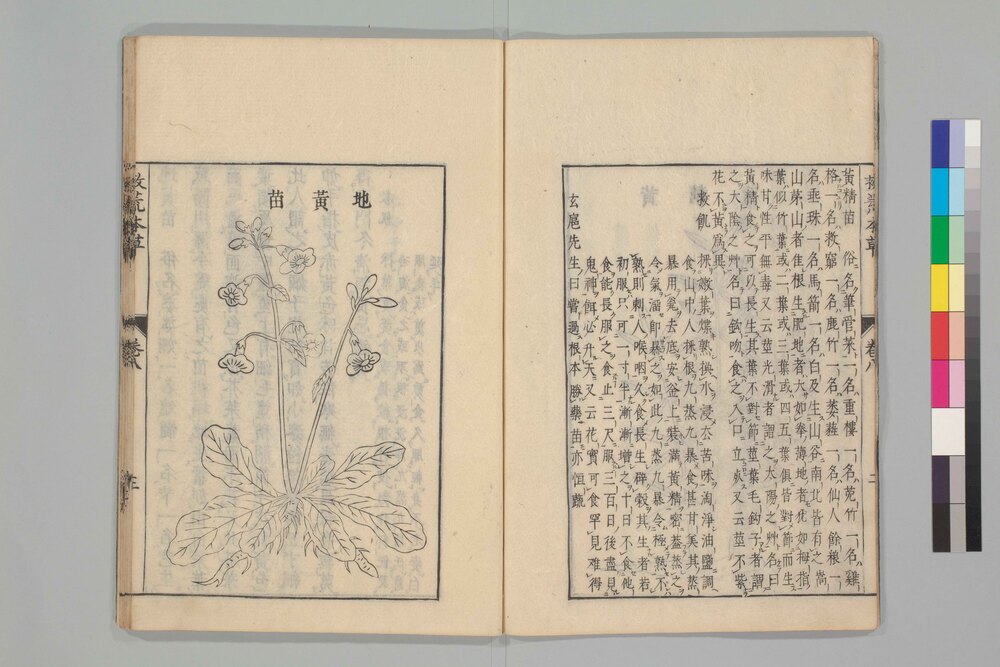 黃精苗　俗名筆管菜一名重樓一名菟竹一名雞
格一名救窮一名鹿竹一名萎蕤一名仙人餘粮一
名垂珠一名馬箭一名白及生山谷南北皆有之嵩
山茅山者佳根生肥地者大如拳薄地者猶如拇指
葉似竹葉或二葉或三葉或四五葉俱皆對節而生
味甘性平無毒又云莖光滑者謂之太陽之艸名曰
黃精食之可以長生其葉不對節莖葉毛鉤子者謂
之大陰之艸名曰鉤吻食之入口立死又云莖不紫
花不黃爲異
救飢　採嫩葉煠熟換水浸去苦味淘淨油鹽調
食山中人採根九蒸九暴食甚甘美其蒸
暴用瓮去底安釜上裝滿黃精密蓋蒸之
令氣溜即暴之如此九蒸九暴令極熟不
熟則刺人喉咽久食長生辟穀其生者若
初服只可一寸半漸漸增之十日不食他
食能長服之食止三尺服三百日後盡見
鬼神餌必升天又云花實可食罕見難得
玄扈先生曰嘗過根本勝藥苗亦恒蔬
救荒本草
卷八
二
地黃苗
救荒本草
卷八